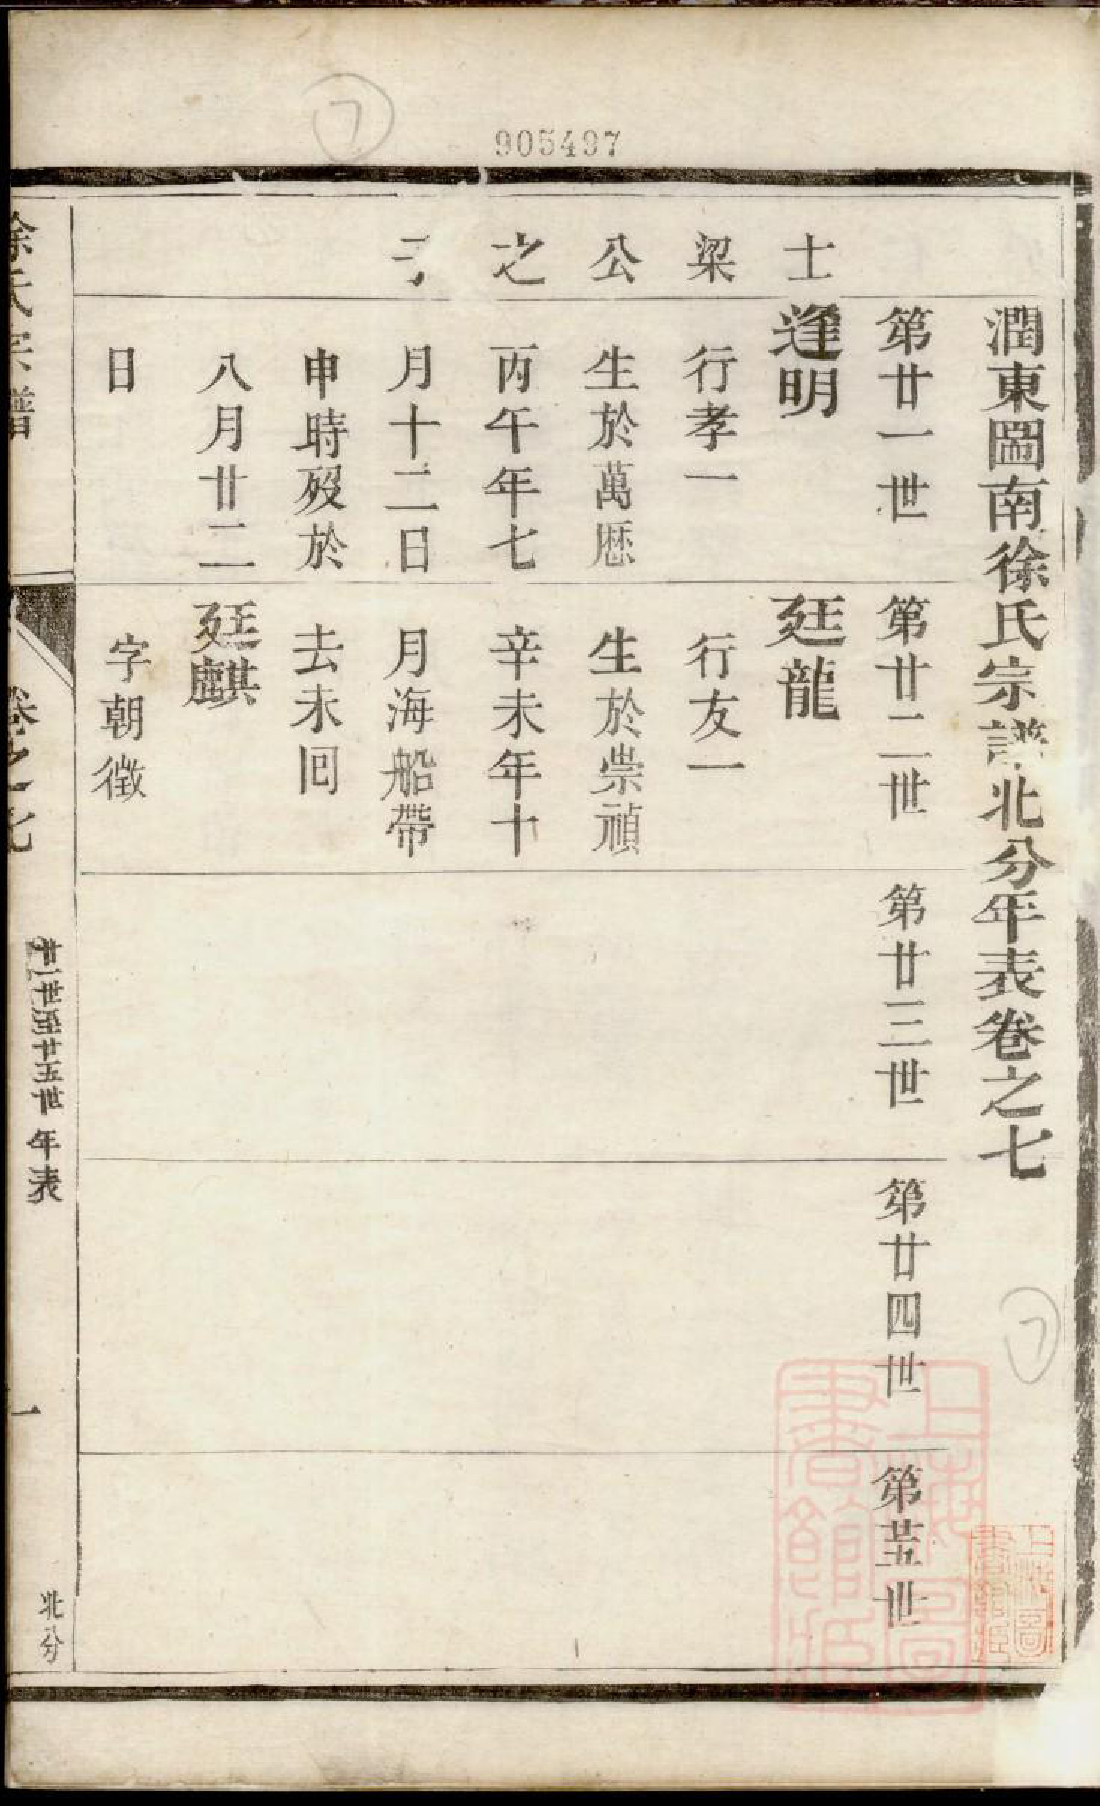 905497
潤東圌南徐氏宗譜北分年表卷之七
士梁公之子
第廿一世
逢明
行孝一
生於萬厯
丙午年七
月十二日
申時歿於
八月廿二
日
第廿二世
廷龍
行友一
生於崇禎
辛未年十
月海船帶
去未囘
廷麒
字朝徵
第廿三世
第廿四世
第廿五世
徐氏宗譜
卷之七
廿一世至廿五世年表
一
北分
上海圖書館藏
上海圖書館藏
7
7